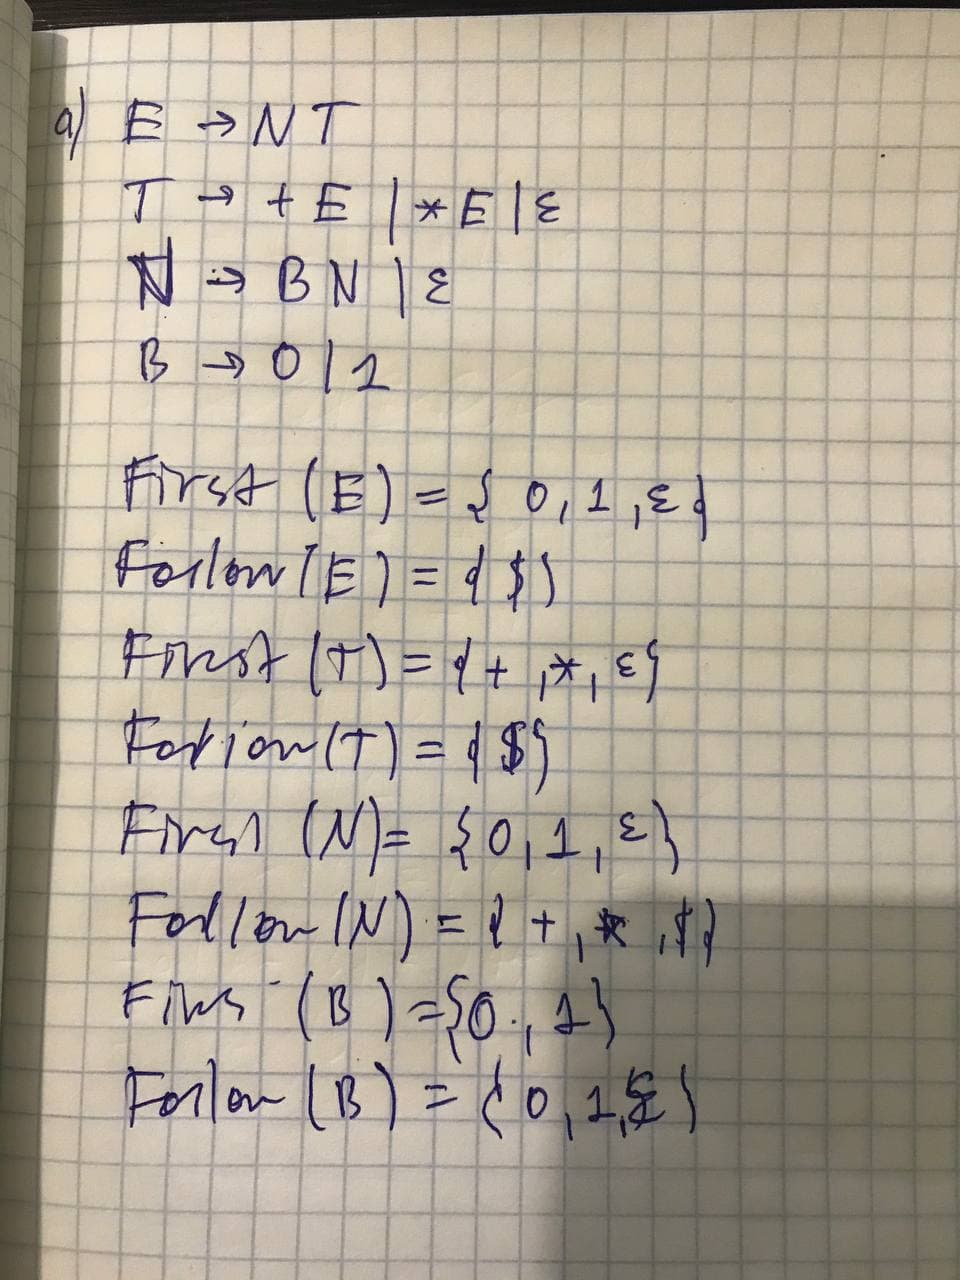 a) E → N T
T → + E | * E | ε
N → B N | ε
B → 0 | 1
First (E) = { 0, 1, ε }
Follow (E) = { $ }
First (T) = { +, *, ε }
Follow (T) = { $ }
First (N) = { 0, 1, ε }
Follow (N) = { +, *, $ }
First (B) = { 0, 1 }
Follow (B) = { 0, 1, }